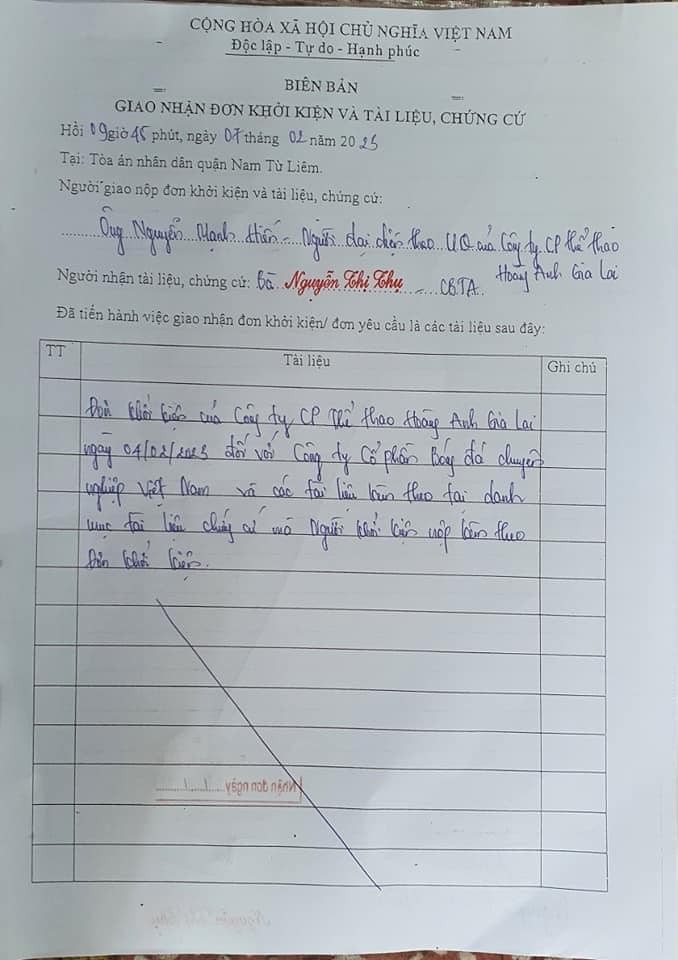 CỘNG HÒA XÃ HỘI CHỦ NGHĨA VIỆT NAM
Độc lập - Tự do - Hạnh phúc
BIÊN BẢN
GIAO NHẬN ĐƠN KHỞI KIỆN VÀ TÀI LIỆU, CHỨNG CỨ
Hồi 09 giờ 45 phút, ngày 07 tháng 02 năm 2023
Tại: Tòa án nhân dân quận Nam Từ Liêm.
Người giao nộp đơn khởi kiện và tài liệu, chứng cứ:
Ông Nguyễn Mạnh Hiến - Người đại diện theo UQ của Công ty CP Thể thao
Hoàng Anh Gia Lai
Người nhận tài liệu, chứng cứ: Bà Nguyễn Thị Thụ - CBTA
Đã tiến hành việc giao nhận đơn khởi kiện/ đơn yêu cầu là các tài liệu sau đây:
TT Tài liệu Ghi chú
Đơn khởi kiện của Công ty CP Thể thao Hoàng Anh Gia Lai
ngày 04/02/2023 đối với Công ty Cổ phần Bóng đá chuyên
nghiệp Việt Nam và các tài liệu kèm theo tại danh
mục tài liệu chứng cứ mà Người khởi kiện nộp kèm theo
Đơn khởi kiện.
Nhận đơn ngày...../...../.....